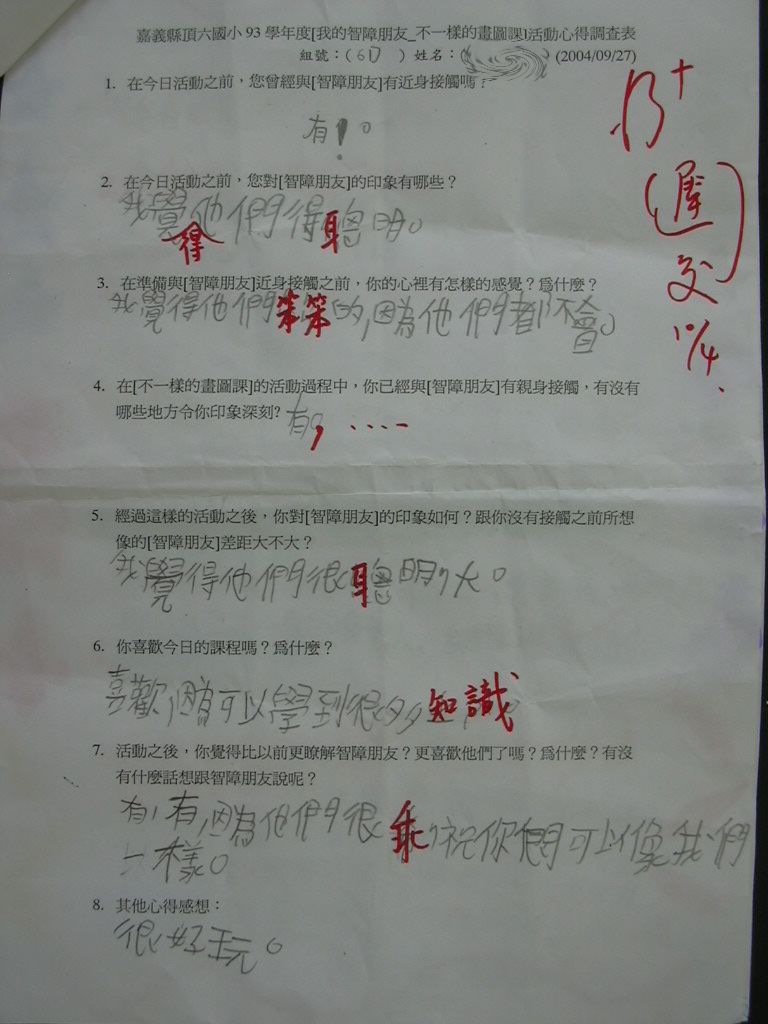 嘉義縣頂六國小93學年度[我的智障朋友_不一樣的畫圖課]活動心得調查表
組號:( 6D ) 姓名:( (2004/09/27)
1. 在今日活動之前,您曾經與[智障朋友]有近身接觸嗎?
有!。
2. 在今日活動之前,您對[智障朋友]的印象有哪些?
我覺他們得聰明。
得
3. 在準備與[智障朋友]近身接觸之前,你的心裡有怎樣的感覺?爲什麼?
我覺得他們笨笨的,因為他們都不會。
4. 在[不一樣的畫圖課]的活動過程中,你已經與[智障朋友]有親身接觸,有沒有
哪些地方令你印象深刻? 有, ····
5. 經過這樣的活動之後,你對[智障朋友]的印象如何?跟你沒有接觸之前所想
像的[智障朋友]差距大不大?
我覺得他們很聰明,大。
6. 你喜歡今日的課程嗎?爲什麼?
喜歡,因為可以學到很多知識。
7. 活動之後,你覺得比以前更瞭解智障朋友?更喜歡他們了嗎?爲什麼?有沒
有什麼話想跟智障朋友說呢?
有,有,因為他們很乖,祝你們可以像我們
一樣。
8. 其他心得感想:
很好玩。
(遲)
交
10/4.